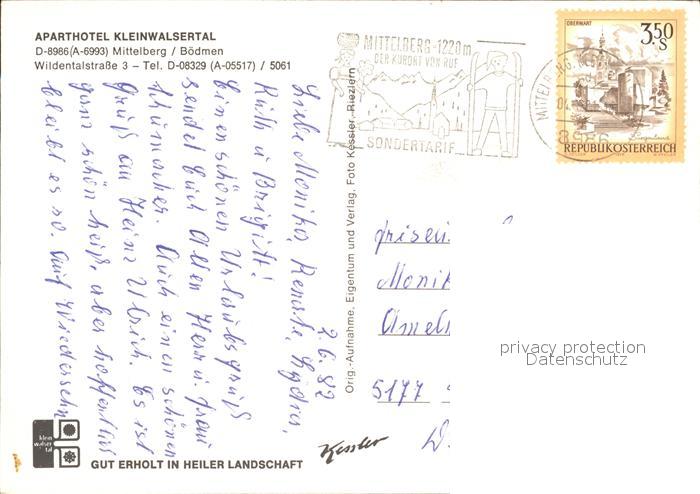 APARTHOTEL KLEINWALSERTAL
D-8986(A-6993) Mittelberg / Bödmen
Wildentalstraße 3 – Tel. D-08329 (A-05517) / 5061
MITTELBERG-1220m
DER KURORT VON RUF
SONDERTARIF
OBERWART
3.50
S
REPUBLIK ÖSTERREICH
2.6.82
Liebe Monika, Renate, Lydia,
Ruth u Brigitt!
Einen schönen Urlaubsgruß
sendet Euch Allen Herr u. Frau
Auch einen schönen
Gruß an Heinz Ulrich. Es ist
ganz schön heiß, aber hoffentlich
bleibt es so. Auf Wiedersehn
Orig.-Aufnahme, Eigentum und Verlag, Foto Kessler, Riezlern
Monik
Ameln
5177
Kessler
klein
walser
tal
GUT ERHOLT IN HEILER LANDSCHAFT
privacy protection
Datenschutz